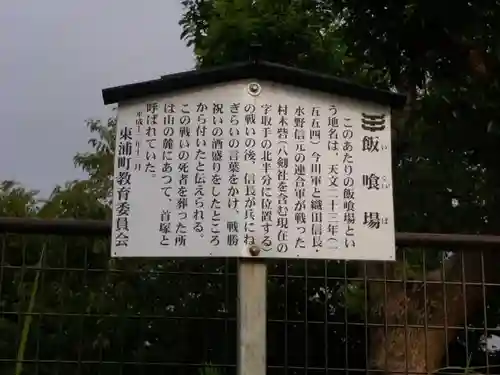 飯喰場
いくいば
このあたりの飯喰場とい
う地名は、天文二十三年(一
五五四)今川軍と織田信長・
水野信元の連合軍が戦った
村木砦(八剱社を含む現在の
字取手の北半分に位置する)
の戦いの後、信長が兵にね
ぎらいの言葉をかけ、戦勝
祝いの酒盛りをしたところ
から付いたと伝えられる。
この戦いの死者を葬った所
は山の麓にあって、首塚と
呼ばれていた。
東浦町教育委員会